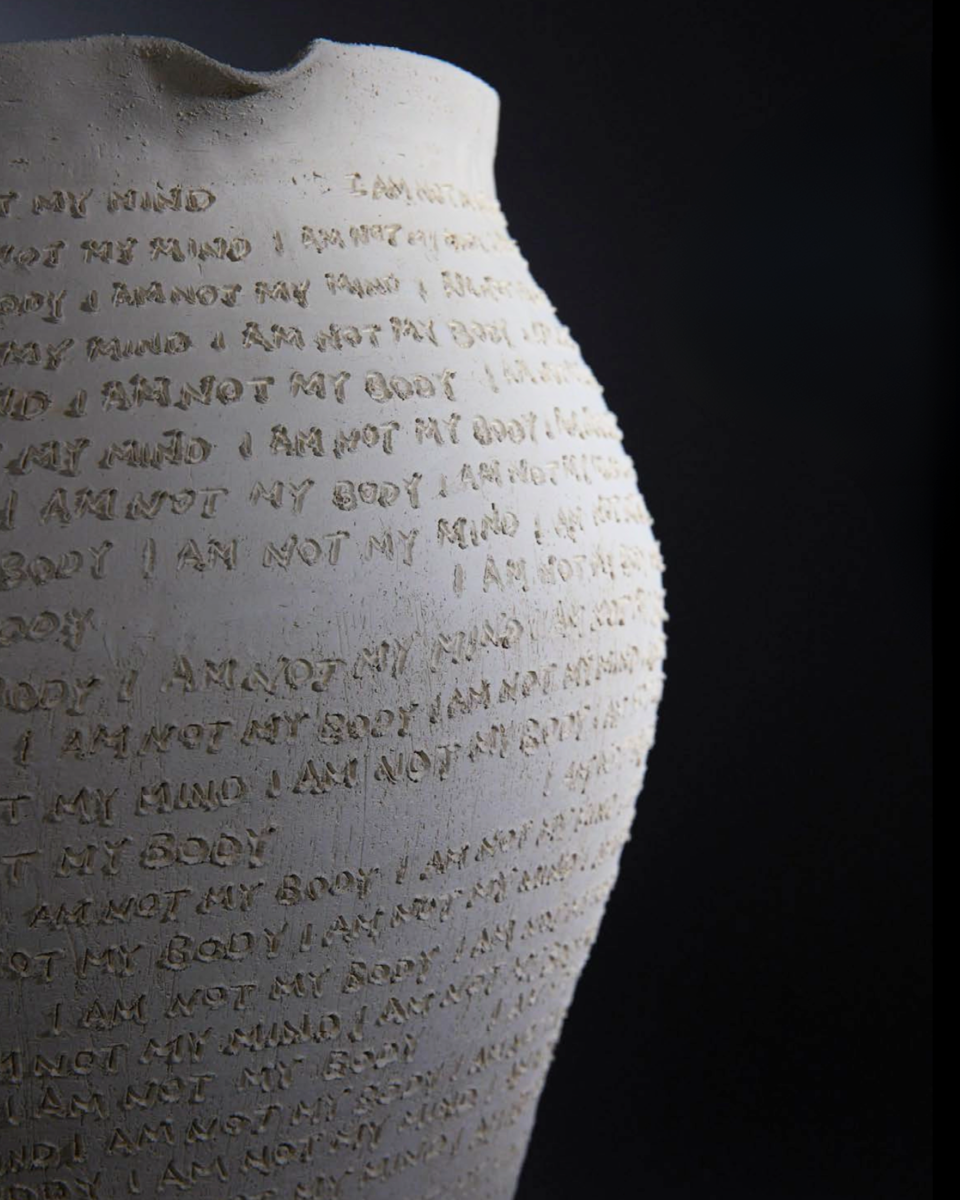 T MY MIND I AM NOT
NOT MY MIND I AM NOT MY
BODY I AM NOT MY MIND I
MY MIND I AM NOT MY BODY
I AM NOT MY BODY
MY MIND I AM NOT MY BODY
I AM NOT MY BODY I AM NOT MY
BODY I AM NOT MY MIND I AM
I AM NOT MY
BODY
BODY I AM NOT MY MIND I AM NOT
I AM NOT MY BODY I AM NOT MY MIND
T MY MIND I AM NOT MY BODY
I AM NOT
T MY BODY
I AM NOT MY
AM NOT MY BODY
OT MY BODY I AM NOT MY MIND
I AM NOT MY BODY I AM
NOT MY MIND I AM NOT
I AM
I AM NOT MY BODY
I AM NOT MY BODY I AM
I AM NOT MY MIND
NOT MY MIND I